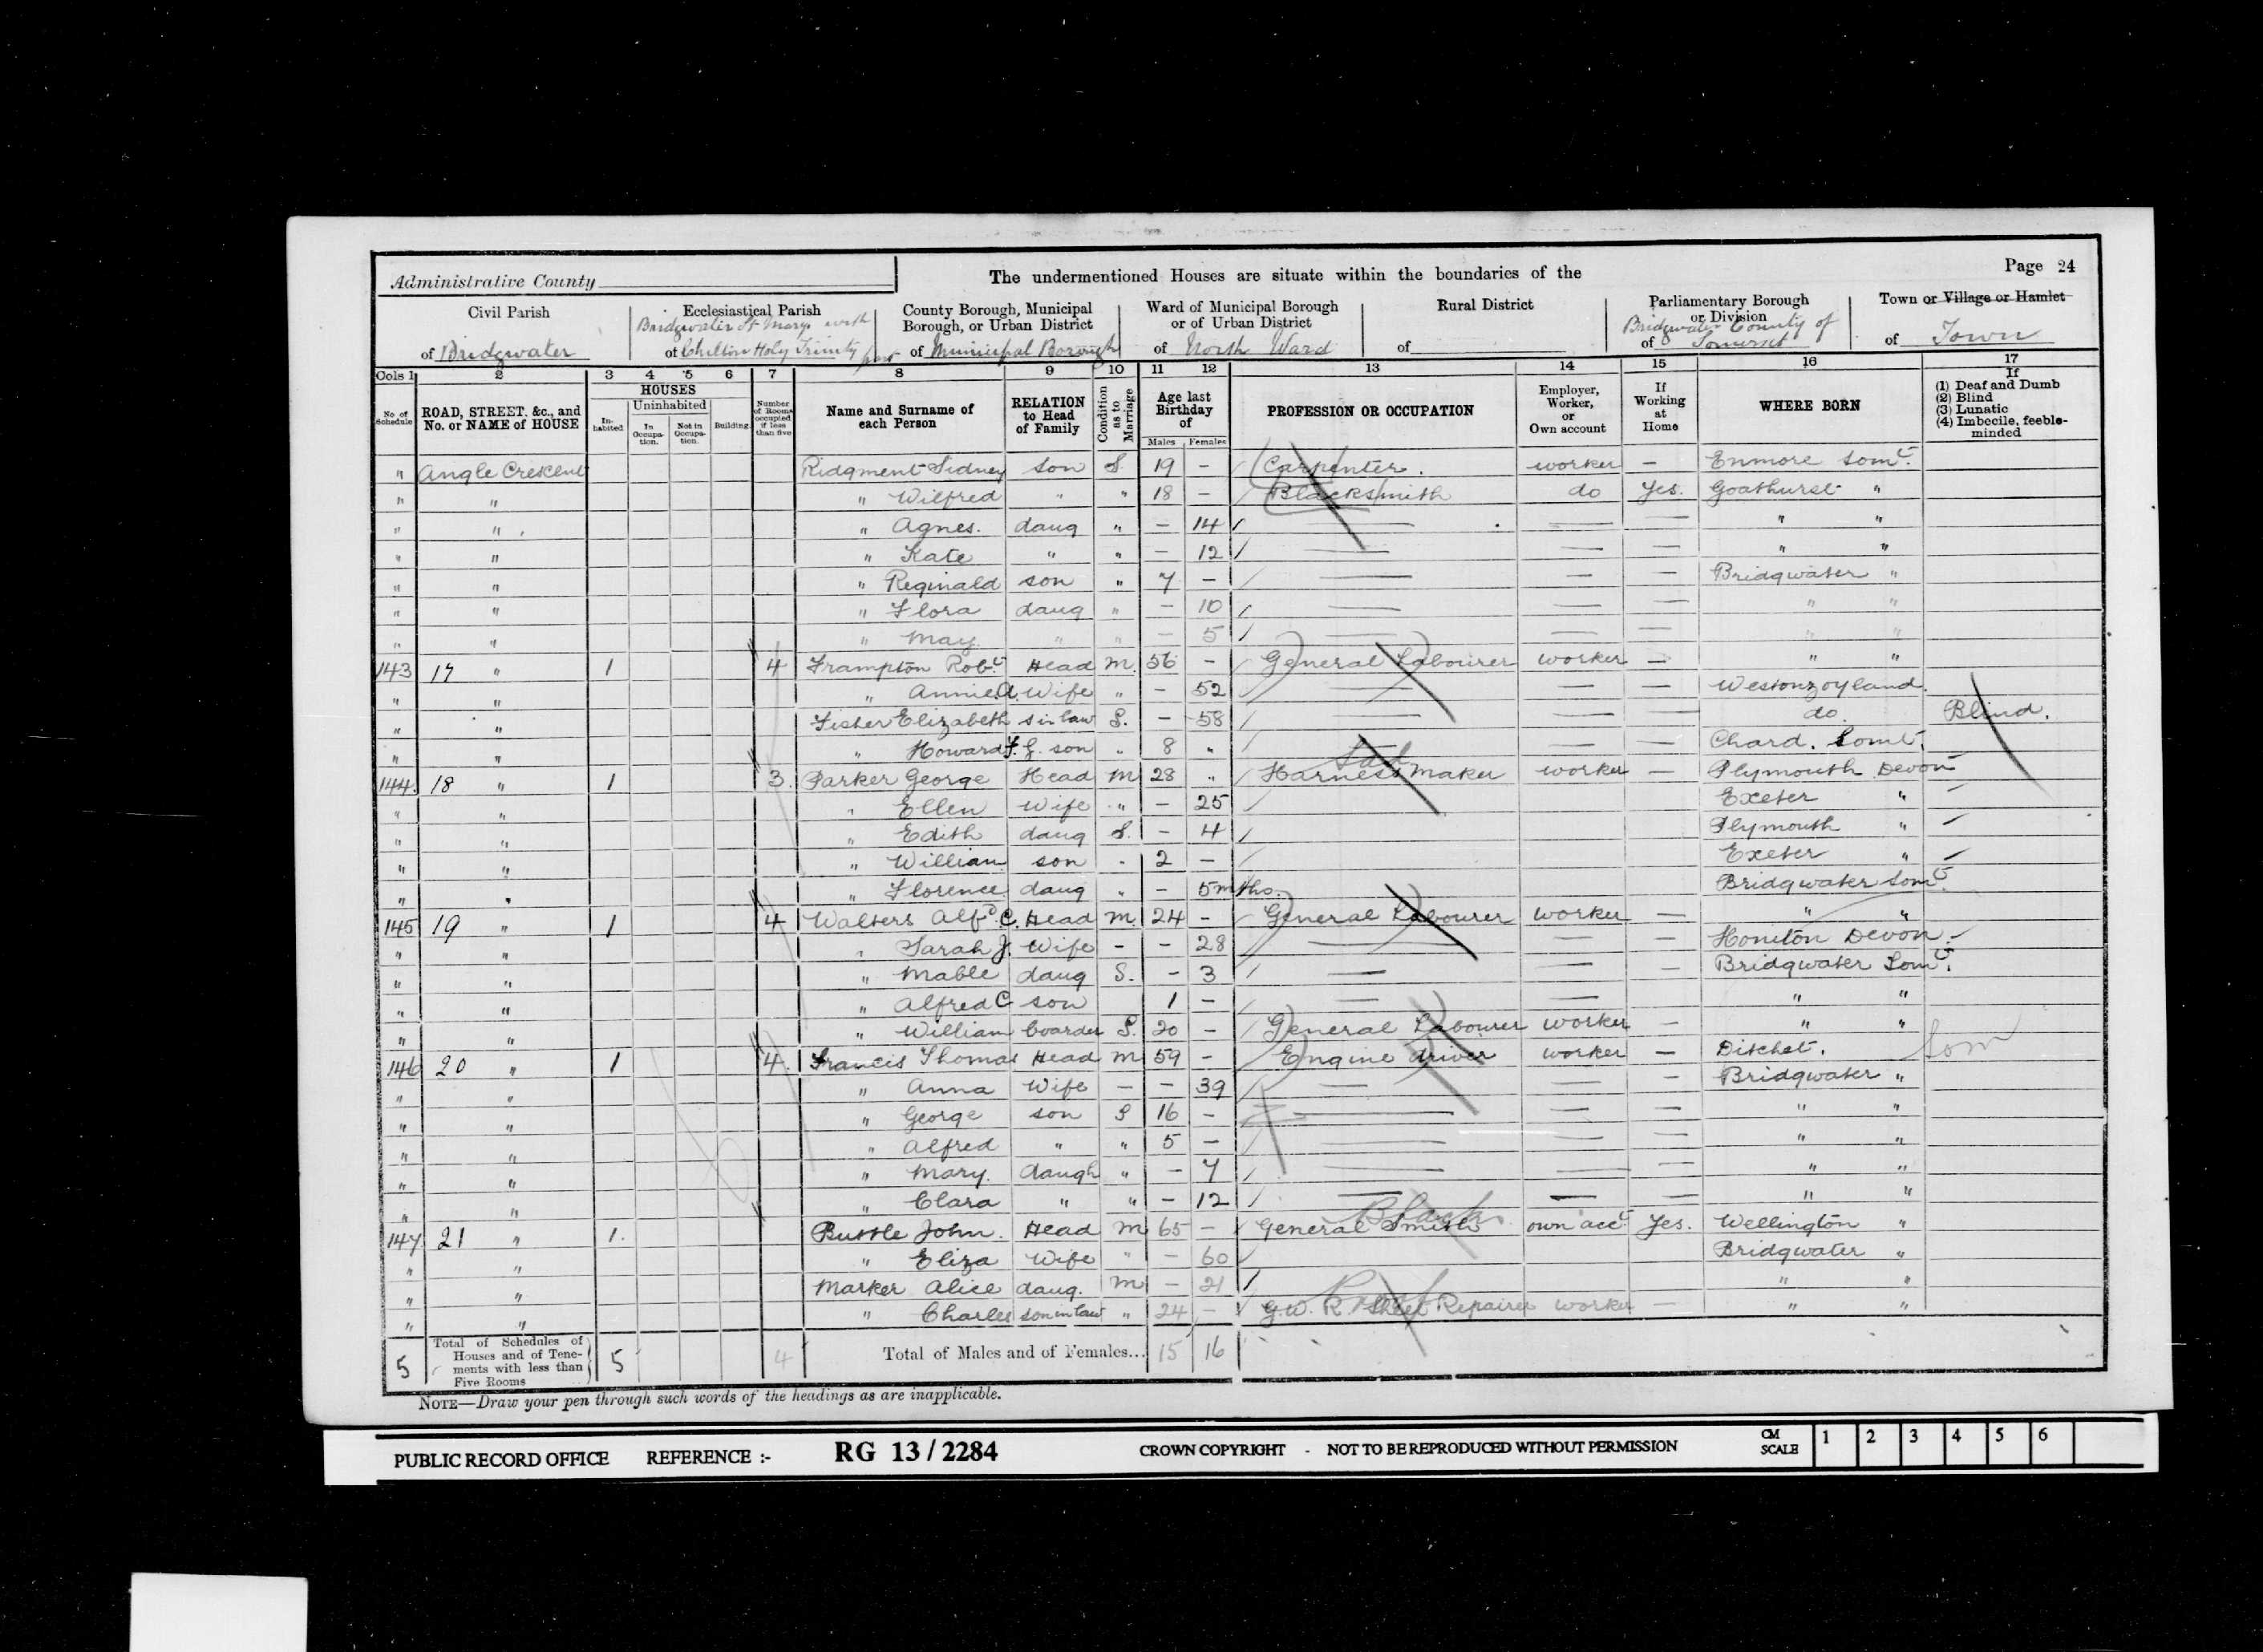 Administrative County
The undermentioned Houses are situate within the boundaries of the
Page 24
Civil Parish
of Bridgwater
Ecclesiastical Parish
Bridgwater St Marys with
of Chilton Holy Trinity part
County Borough, Municipal
Borough, or Urban District
of Municipal Borough
Ward of Municipal Borough
or of Urban District
of North Ward
Rural District
of
Parliamentary Borough
or Division
Bridgwater County of
of Somerset
Town or Village or Hamlet
of Town
Cols 1 2 3 4 5 6 7 8 9 10 11 12 13 14 15 16 17
No. of Schedule
ROAD, STREET, &c., and No. or NAME of HOUSE
HOUSES
In-habited
Uninhabited
In Occupa-tion.
Not in Occupa-tion.
Building.
Number of Rooms occupied if less than five
Name and Surname of each Person
RELATION to Head of Family
Condition as to Marriage
Age last Birthday of
Males Females
PROFESSION OR OCCUPATION
Employer, Worker, or Own account
If Working at Home
WHERE BORN
If
(1) Deaf and Dumb
(2) Blind
(3) Lunatic
(4) Imbecile, feeble-minded
" Angle Crescent Ridgment Sidney son S. 19 - Carpenter. worker - Enmore Somt.
" " " Wilfred " " 18 - Blacksmith do Yes. Goathurst "
" " " Agnes. daug " - 14 — — — " "
" " " Kate " " - 12 — — — " "
" " " Reginald son " 7 - — — — Bridgwater "
" " " Flora daug " - 10 — — — " "
" " " May " " - 5 — — — " "
143 17 " 1 4 Frampton Robt Head M. 56 - General Labourer worker - " "
" " " Annie A. Wife " - 52 — — — Westonzoyland.
" " Fisher Elizabeth s in law S. - 58 — — — do. Blind.
" " " Howard F. G. son " 8 " — — — Chard. Somt.
144. 18 " 1 3. Parker George Head M 28 " Harness Maker worker - Plymouth Devon
" " " Ellen Wife " - 25 Exeter "
" " " Edith daug S. - 4 Plymouth "
" " " William son " 2 - Exeter "
" " " Florence daug " - 5 mths. Bridgwater Somt.
145 19 " 1 4 Walters Alfd. C. Head M. 24 - General Labourer worker — " "
" " " Sarah J. Wife - - 28 — — — Honiton Devon.
" " " Mable daug S. - 3 — — — Bridgwater Somt.
" " " Alfred C son 1 - — — " "
" " " William boarder S. 20 - General Labourer worker — " "
146 20 " 1 4. Francis Thomas Head M 59 - Engine driver worker — Ditchet. Som
" " " Anna Wife — - 39 — — — Bridgwater "
" " " George son S 16 - — — — " "
" " " Alfred " " 5 - — — — " "
" " " Mary. daugh " - 7 — — — " "
" " " Clara " " - 12 — — — " "
147 21 " 1. Buttle John. Head M 65 - General Smith Black own acct Yes. Wellington "
" " " Eliza Wife " - 60 Bridgwater "
" " Marker Alice daug. M - 21 " "
" " " Charles son in law " 24 - G.W.R. Sheet Repairer worker — " "
5 Total of Schedules of Houses and of Tene-ments with less than Five Rooms 5 4 Total of Males and of Females... 15 16
NOTE—Draw your pen through such words of the headings as are inapplicable.
PUBLIC RECORD OFFICE REFERENCE :- RG 13 / 2284 CROWN COPYRIGHT - NOT TO BE REPRODUCED WITHOUT PERMISSION CM SCALE 1 2 3 4 5 6